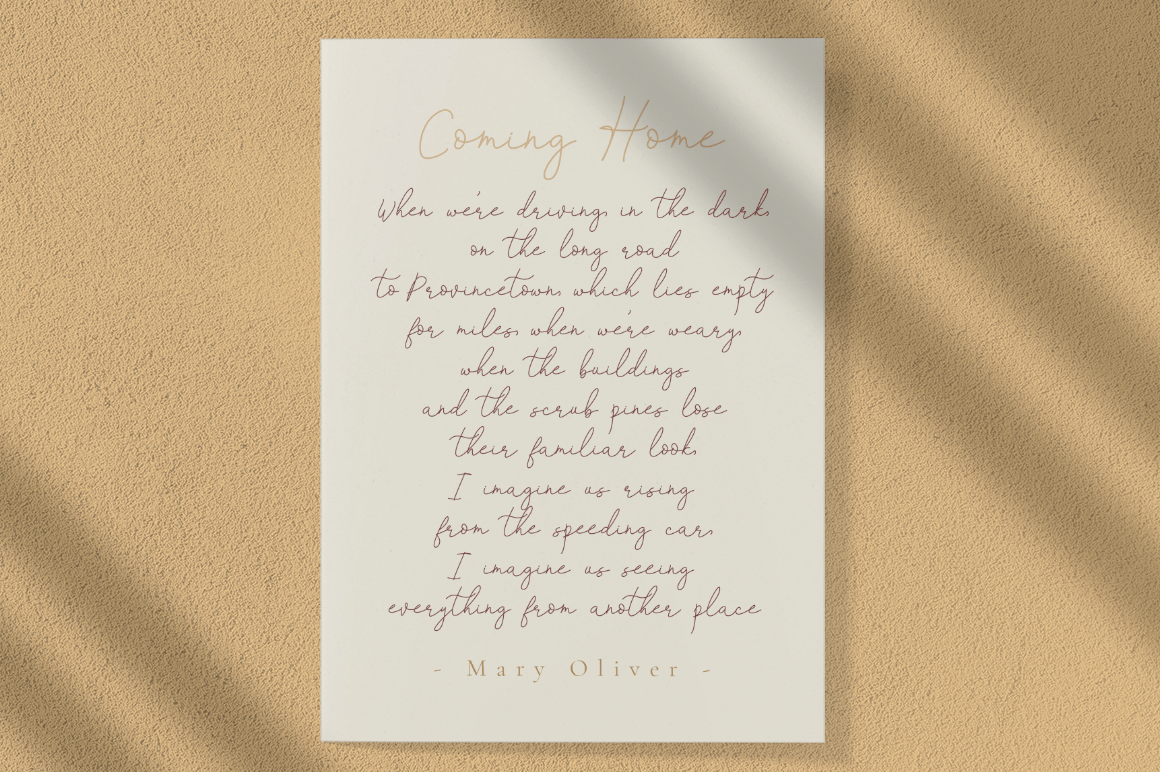 Coming Home
When we're driving, in the dark,
on the long road
to Provincetown, which lies empty
for miles, when we're weary,
when the buildings
and the scrub pines lose
their familiar look,
I imagine us rising
from the speeding car,
I imagine us seeing
everything from another place
- Mary Oliver -